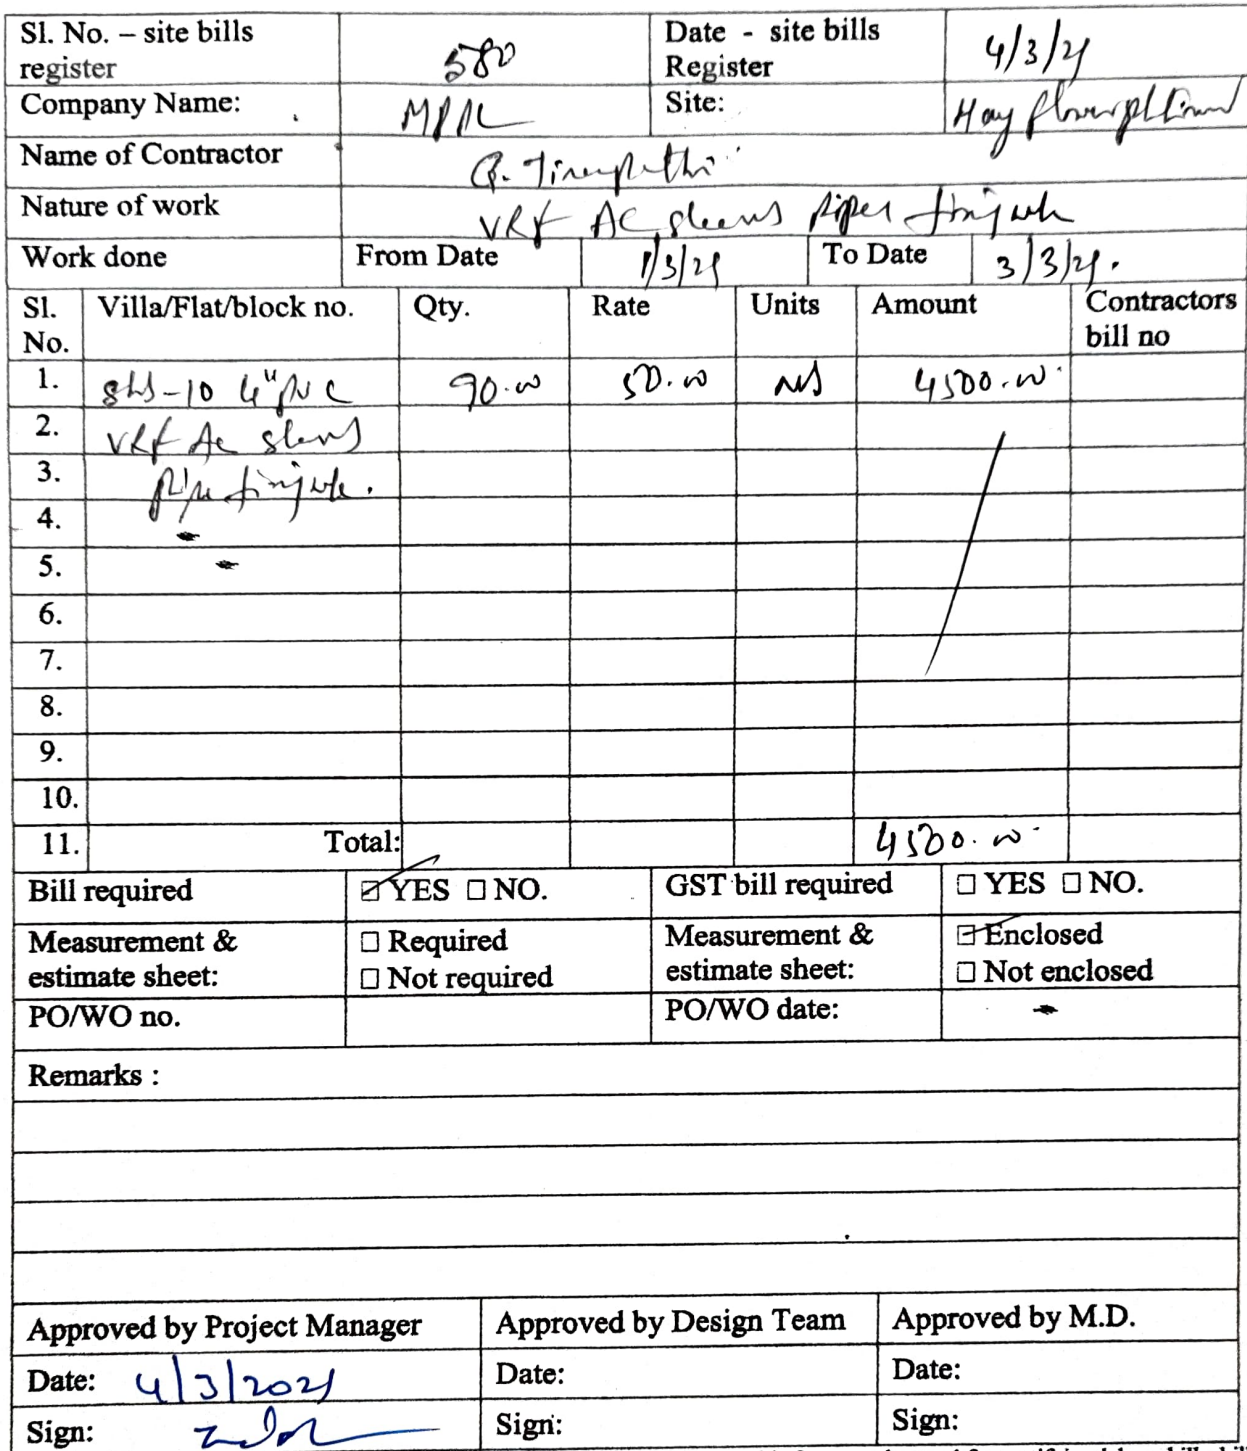 Sl. No. – site bills register 580 Date - site bills Register 4/3/21
Company Name: Site:
Name of Contractor G. Tirupathi
Nature of work VRF AC sleeves pipes fixing work
Work done From Date 1/3/21 To Date 3/3/21.
Sl. No. Villa/Flat/block no. Qty. Rate Units Amount Contractors bill no
1. -10 4" PVC 90.00 50.00 4500.00
2. VRF AC sleeves
3. pipe fixing work.
4.
5.
6.
7.
8.
9.
10.
11. Total: 4500.00
Bill required ☑ YES ☐ NO. GST bill required ☐ YES ☐ NO.
Measurement & estimate sheet: ☐ Required ☐ Not required Measurement & estimate sheet: ☑ Enclosed ☐ Not enclosed
PO/WO no. PO/WO date:
Remarks :
Approved by Project Manager Approved by Design Team Approved by M.D.
Date: 4/3/2021 Date: Date:
Sign: Sign: Sign: